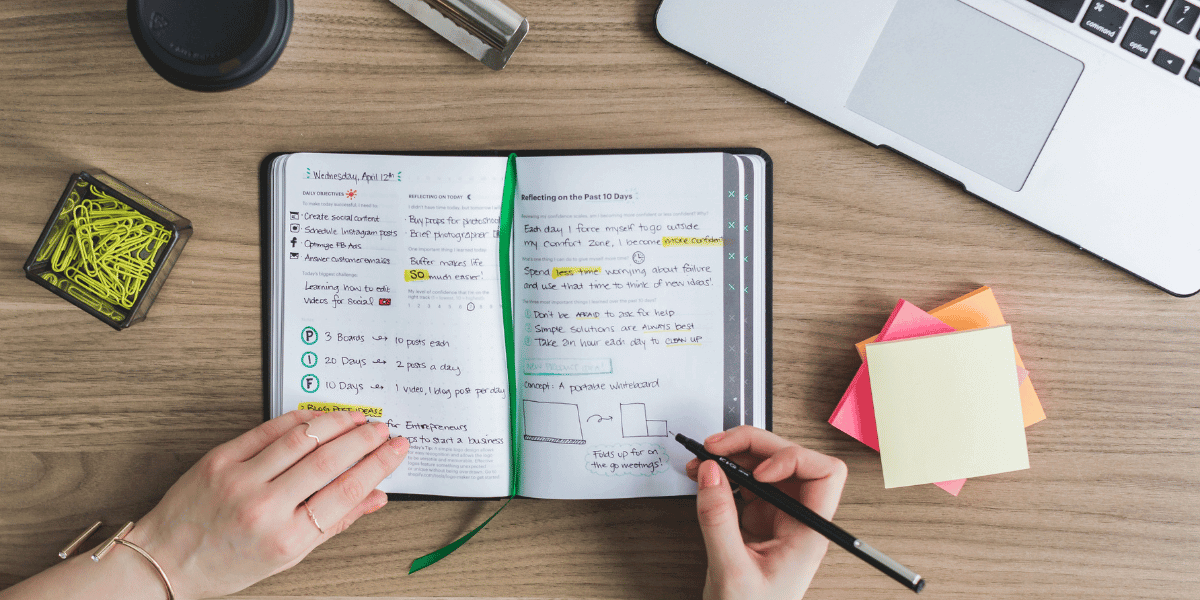 Wednesday, April 12th
DAILY OBJECTIVES
To make today successful, I need to:
Create social content
Schedule Instagram posts
f Optimize FB Ads
Answer customer emails
Today's biggest challenge:
Learning how to edit
videos for social
P 3 Boards → 10 posts each
I 20 Days → 2 posts a day
F 10 Days → 1 video, 1 blog post per day
BLOG POST IDEAS:
for Entrepreneurs
to start a business
REFLECTING ON TODAY
I didn't have time today, but tomorrow I will
· Buy props for photoshoot
· Brief photographer
One important thing I learned today:
Buffer makes life
SO much easier!
Reflecting on the Past 10 Days
Each day I force myself to go outside
my comfort zone, I become more confident
Spend less time worrying about failure
and use that time to think of new ideas!
1 Don't be AFRAID to ask for help
2 Simple solutions are ALWAYS best
3 Take an hour each day to CLEAN UP
Concept: A portable whiteboard
Folds up for on
the go meetings!
⌘
command
option
?
/